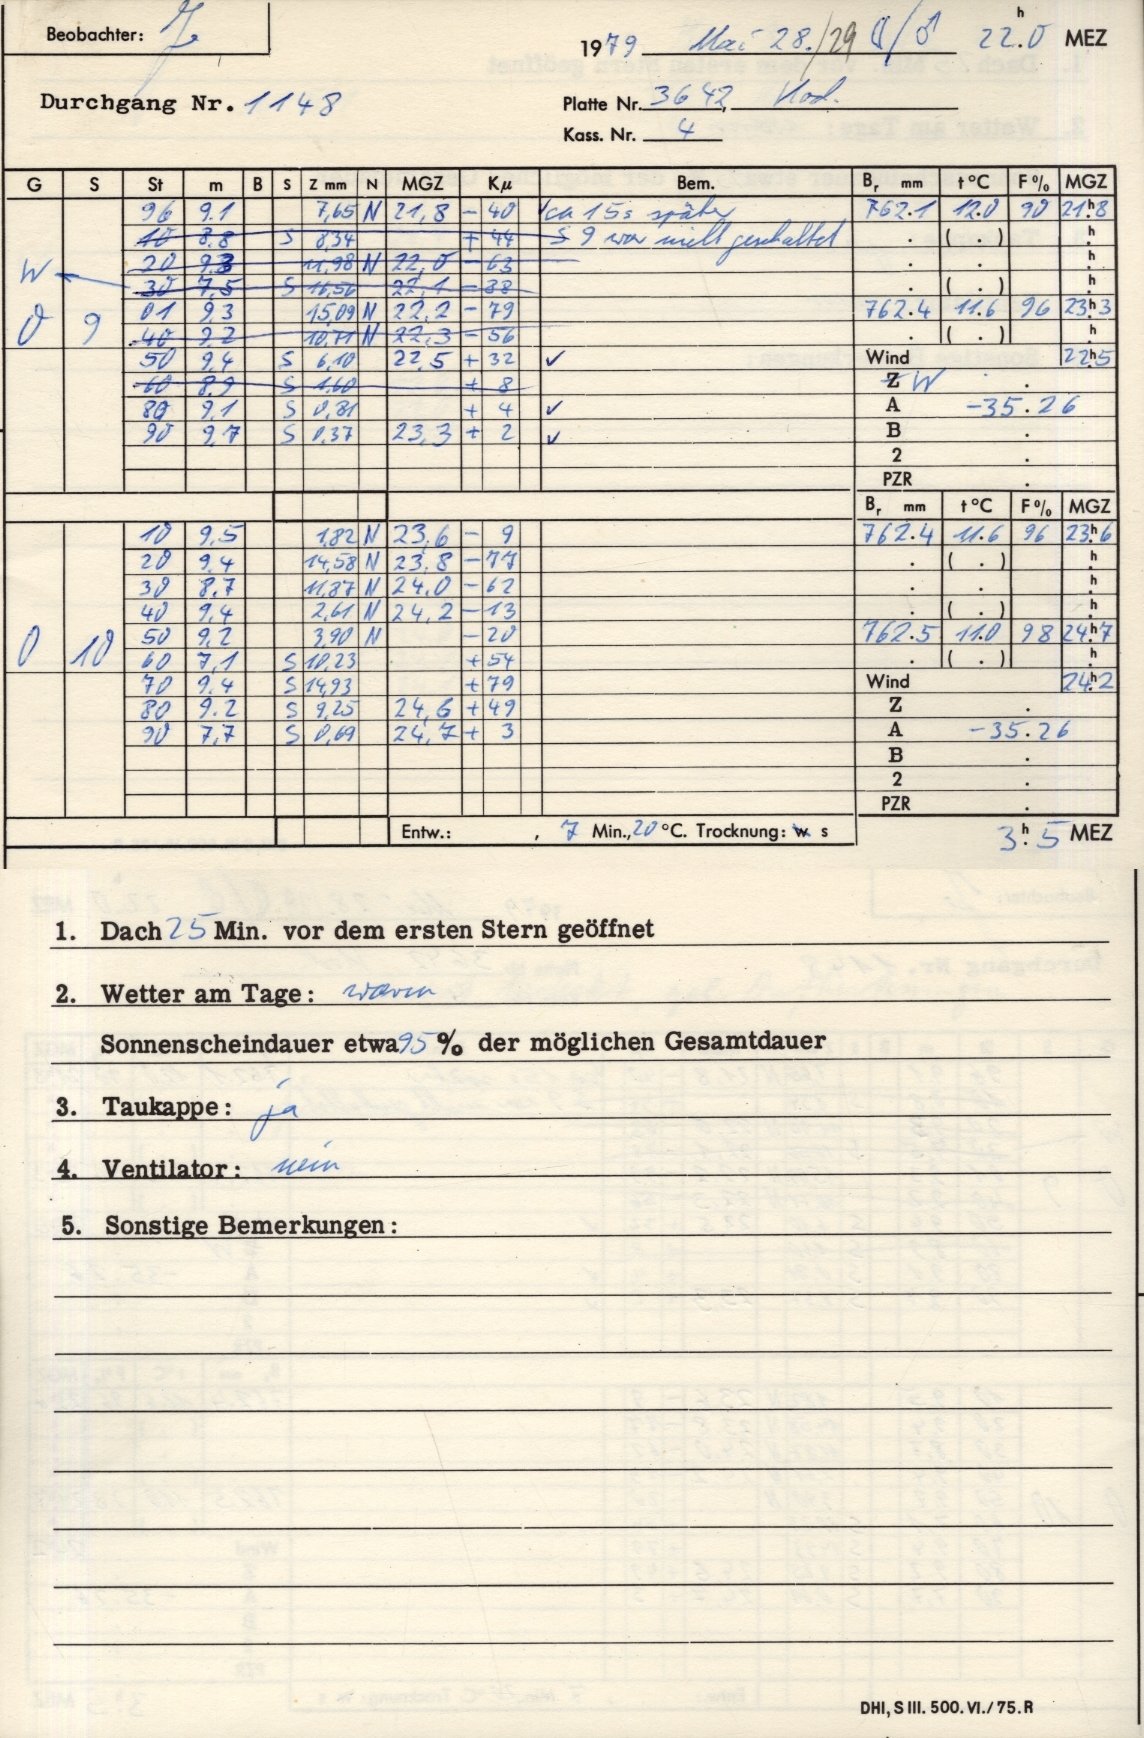 Beobachter:
1979 Mai 28./29 22h.0 MEZ
Durchgang Nr. 1148
Platte Nr. 3642, Kod.
Kass. Nr. 4
G S St m B S Z mm N MGZ Kμ Bem. Br mm t°C F% MGZ
96 9.1 7,65 N 21,8 - 40 ✓ ca 15s später 762.1 12.0 90 21h8
10 8.8 S 8,34 + 44 S 9 war nicht geschaltet . ( . ) h
20 9.3 11,98 N 22,0 - 63 . . h
W 30 7,5 S 16,56 22,1 - 88 . ( . ) h
0 9 01 9,3 15,09 N 22,2 - 79 762.4 11.6 96 23h3
40 9.2 10,71 N 22,3 - 56 . ( . ) h
50 9,4 S 6,10 22,5 + 32 ✓ Wind 22h5
60 8.9 S 1.60 + 8 Z W .
80 9,1 S 0,81 + 4 ✓ A -35.26
90 9,7 S 0,37 23,3 + 2 ✓ B .
2 .
PZR .
Br mm t°C F% MGZ
10 9,5 1,82 N 23,6 - 9 762.4 11.6 96 23h6
20 9,4 14,58 N 23,8 - 77 . ( . ) h
30 8.7 11,87 N 24,0 - 62 . . h
40 9,4 2,61 N 24,2 - 13 . ( . ) h
0 10 50 9,2 3,90 N - 20 762.5 11.0 98 24h7
60 7,1 S 10,23 + 54 . ( . ) h
70 9.4 S 14,93 + 79 Wind 24h2
80 9.2 S 9,25 24,6 + 49 Z .
90 7,7 S 0,69 24,7 + 3 A -35.26
B .
2 .
PZR .
Entw.: , 7 Min., 20 °C. Trocknung: w s 3h.5 MEZ
1. Dach 25 Min. vor dem ersten Stern geöffnet
2. Wetter am Tage: warm
Sonnenscheindauer etwa 95 % der möglichen Gesamtdauer
3. Taukappe: ja
4. Ventilator: nein
5. Sonstige Bemerkungen:
DHI, S III. 500. VI. / 75. R